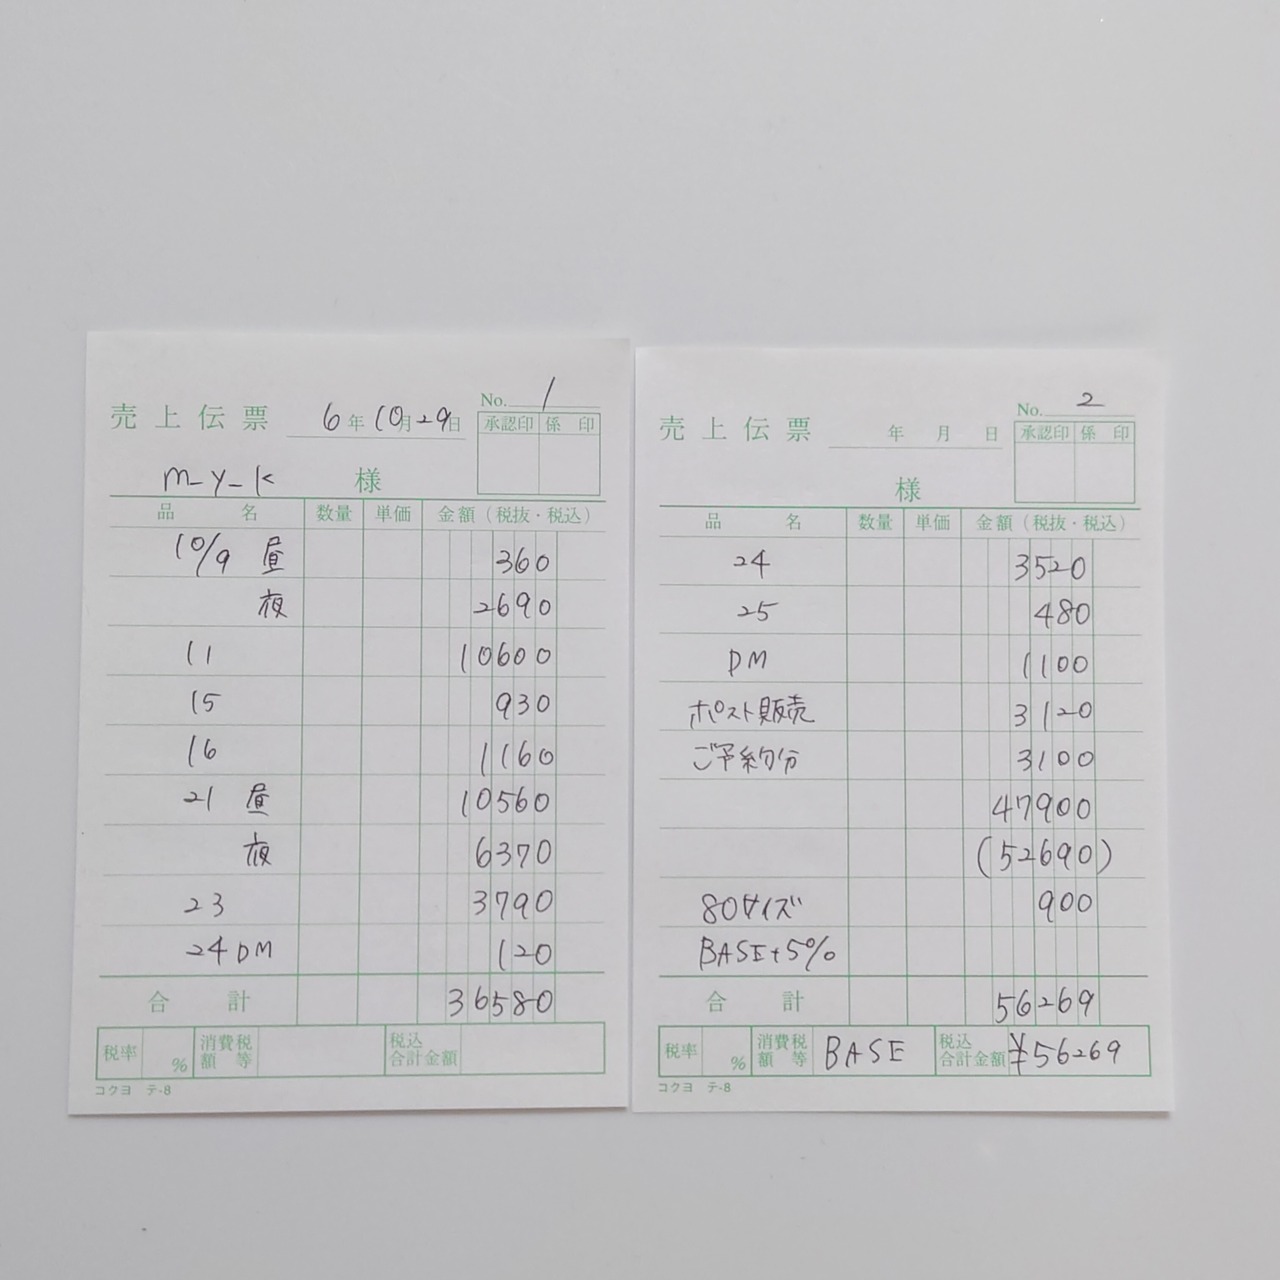 売上伝票 6年10月29日 No. 1
承認印 係印
m-y-k 様
品名 数量 単価 金額(税抜・税込)
10/9 昼 360
夜 2690
11 10600
15 930
16 1160
21 昼 10560
夜 6370
23 3790
24 DM 120
合計 36580
税率 % 消費税額等 税込合計金額
コクヨ テ-8
売上伝票 年 月 日 No. 2
承認印 係印
様
品名 数量 単価 金額(税抜・税込)
24 3520
25 480
DM 1100
ポスト販売 3120
ご予約分 3100
47900
(52690)
80サイズ 900
BASE+5%
合計 56269
税率 % 消費税額等 BASE 税込合計金額 ¥56269
コクヨ テ-8